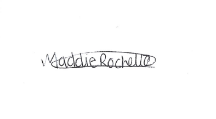 Maddie Rochelle